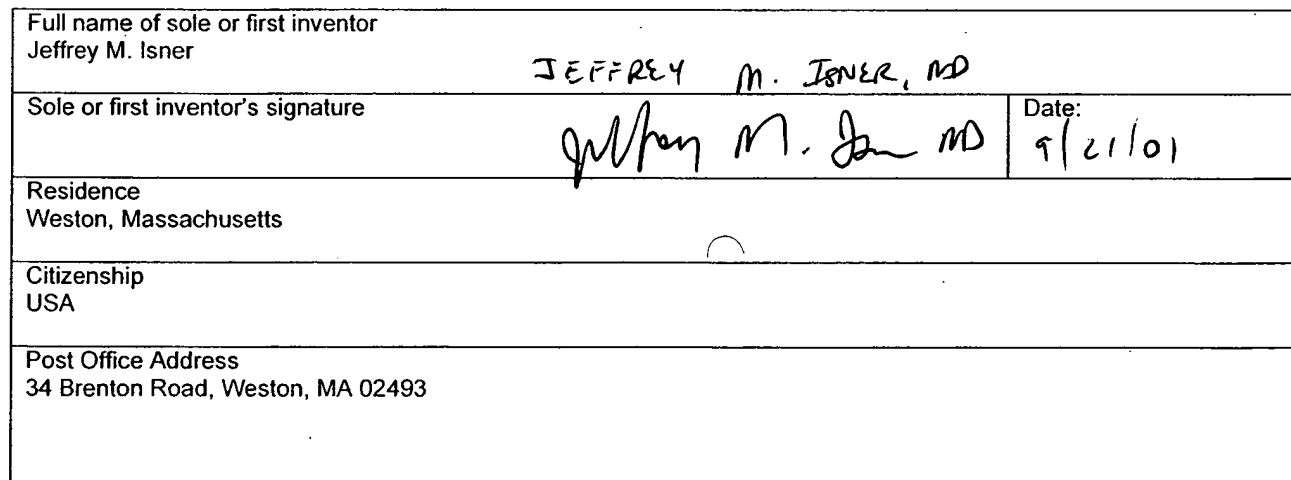 Full name of sole or first inventor
Jeffrey M. Isner
JEFFREY M. ISNER, MD
Sole or first inventor's signature
Jeffrey M. Isner MD
Date:
9/21/01
Residence
Weston, Massachusetts
Citizenship
USA
Post Office Address
34 Brenton Road, Weston, MA 02493